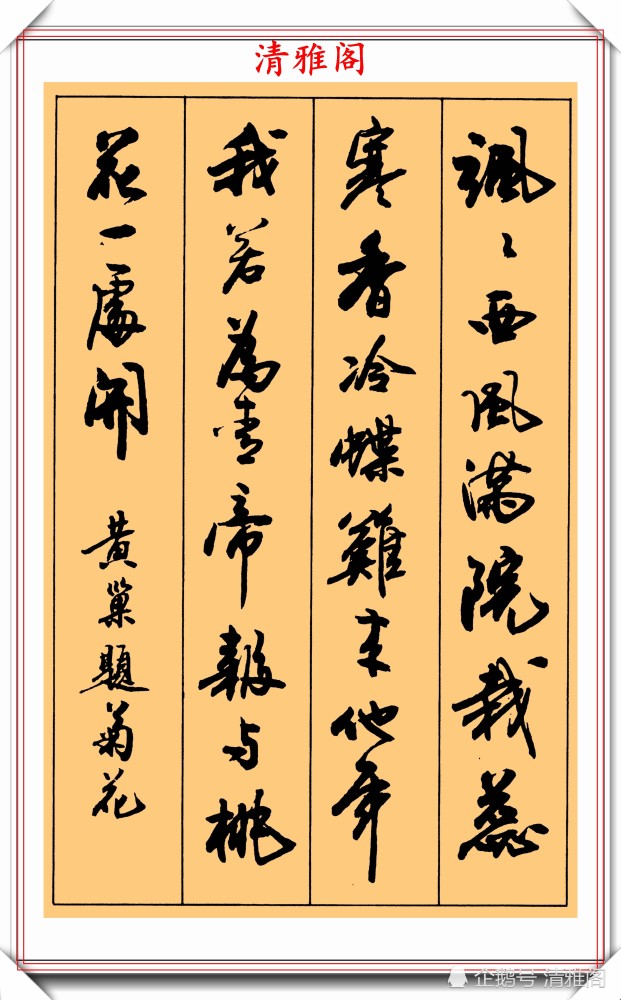 清雅阁
飒〻西风满院栽蕊
寒香冷蝶難来他年
我若為青帝報与桃
花一處開 黄巢題菊花
企鹅号 清雅阁